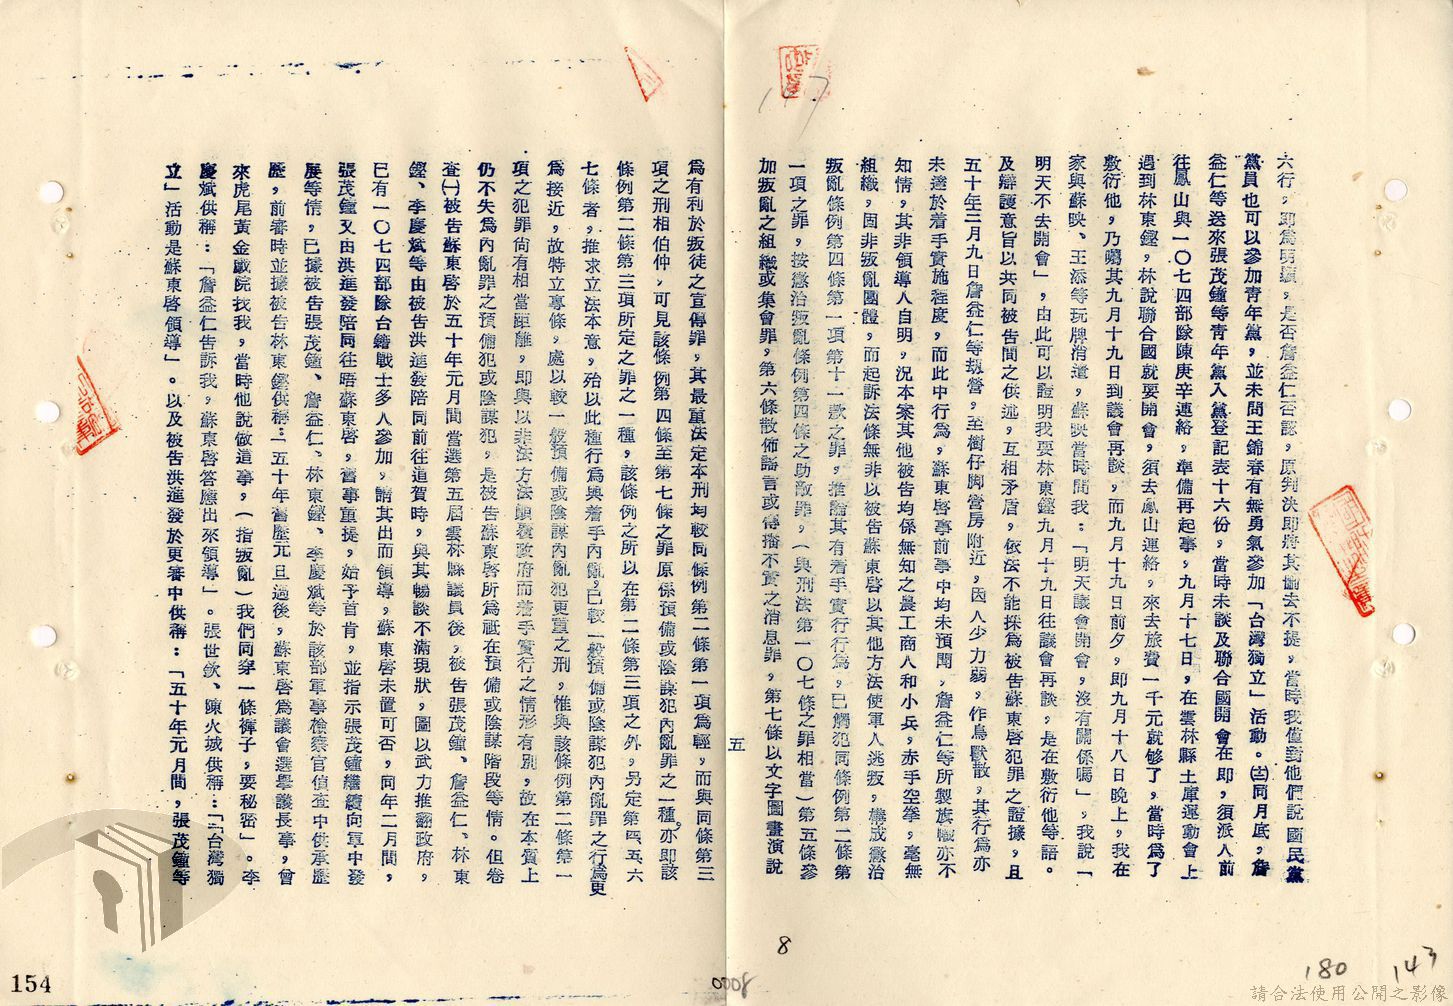 六行，即爲明顯，是否詹益仁否認，原判決即將其恤去不提，當時我僅對他們說國民黨
黨員也可以參加青年黨，並未問王錦春有無勇氣參加「台灣獨立」活動。㈡同月底，詹
益仁等送來張茂鐘等青年黨入黨登記表十六份，當時未談及聯合國開會在即，須派人前
往鳳山與一〇七四部隊陳庚辛連絡，準備再起事，九月十七日，在雲林縣土庫運動會上
遇到林東鏗，林說聯合國就要開會，須去鳳山連絡，來去旅費一千元就够了，當時爲了
敷衍他，乃囑其九月十九日到議會再談，而九月十九日前夕，即九月十八日晚上，我在
家與蘇映、王添等玩牌消遣，蘇映當時問我：「明天議會開會，沒有關係嗎」，我說「
明天不去開會」，由此可以證明我要林東鏗九月十九日往議會再談，是在敷衍他等語。
及辯護意旨以共同被告間之供述，互相矛盾，依法不能採爲被告蘇東啓犯罪之證據，且
五十年三月九日詹益仁等刼營，至樹仔脚營房附近，因人少力弱，作鳥獸散，其行爲亦
未達於着手實施程度，而此中行爲，蘇東啓事前事中均未預聞，詹益仁等所製旗幟亦不
知情，其非領導人自明，況本案其他被告均係無知之農工商人和小兵，赤手空拳，毫無
組織，固非叛亂團體，而起訴法條無非以被告蘇東啓以其他方法使軍人逃叛，構成懲治
叛亂條例第四條第一項第十一款之罪，推論其有着手實行行爲，已觸犯同條例第二條第
一項之罪，按懲治叛亂條例第四條之助敵罪，（與刑法第一〇七條之罪相當）第五條參
加叛亂之組織或集會罪，第六條散佈謠言或傳播不實之消息罪，第七條以文字圖畫演說
五
爲有利於叛徒之宣傳罪，其最重法定本刑均較同條例第二條第一項爲輕，而與同條第三
項之刑相伯仲，可見該條例第四條至第七條之罪原係預備或陰謀犯內亂罪之一種。亦即該
條例第二條第三項所定之罪之一種，該條例之所以在第二條第三項之外，另定第四、五、六
七條者，推求立法本意，殆以此種行爲與着手內亂，已較一般預備或陰謀犯內亂罪之行爲更
爲接近，故特立專條，處以較一般預備或陰謀內亂犯更重之刑，惟與該條例第二條第一
項之犯罪尙有相當距離，即與以非法方法顚覆政府而着手實行之情形有別，故在本質上
仍不失爲內亂罪之預備犯或陰謀犯，是被告蘇東啓所爲祇在預備或陰謀階段等情。但卷
查㈠被告蘇東啓於五十年元月間當選第五屆雲林縣議員後，被告張茂鐘、詹益仁、林東
鏗、李慶斌等由被告洪進發陪同前往道賀時，與其暢談不滿現狀，圖以武力推翻政府，
已有一〇七四部隊台籍戰士多人參加，請其出而領導，蘇東啓未置可否，同年二月間，
張茂鐘又由洪進發陪同往晤蘇東啓，舊事重提，始予首肯，並指示張茂鐘繼續向軍中發
展等情，已據被告張茂鐘、詹益仁、林東鏗、李慶斌等於該部軍事檢察官偵查中供承歷
歷，前審時並據被告林東鏗供稱：「五十年舊歷元旦過後，蘇東啓爲議會選擧議長事，曾
來虎尾黃金戲院找我，當時他說做這事，（指叛亂）我們同穿一條褲子，要秘密」。李
慶斌供稱：「詹益仁告訴我，蘇東啓答應出來領導」。張世欽、陳火城供稱：「「台灣獨
立」活動是蘇東啓領導」。以及被告洪進發於更審中供稱：「五十年元月間，張茂鐘等
8
0008
154
180
143
請合法使用公開之影像